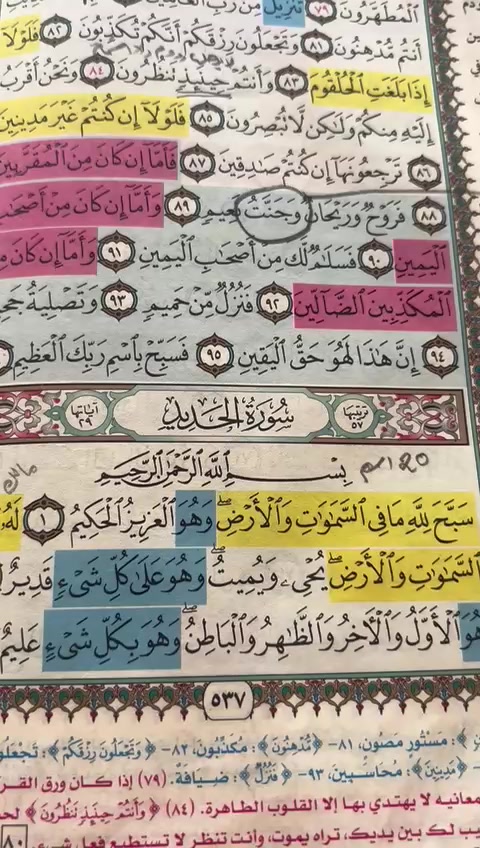 ٱلۡمُطَهَّرُونَ ٧٩ تَنزِيلٞ مِّن رَّبِّ
أَنتُم مُّدۡهِنُونَ ٨١ وَتَجۡعَلُونَ رِزۡقَكُمۡ أَنَّكُمۡ تُكَذِّبُونَ ٨٢ فَلَوۡلَآ
إِذَا بَلَغَتِ ٱلۡحُلۡقُومَ ٨٣ وَأَنتُمۡ حِينَئِذٖ تَنظُرُونَ ٨٤ وَنَحۡنُ أَقۡرَبُ
إِلَيۡهِ مِنكُمۡ وَلَٰكِن لَّا تُبۡصِرُونَ ٨٥ فَلَوۡلَآ إِن كُنتُمۡ غَيۡرَ مَدِينِينَ
٨٦ تَرۡجِعُونَهَآ إِن كُنتُمۡ صَٰدِقِينَ ٨٧ فَأَمَّآ إِن كَانَ مِنَ ٱلۡمُقَرَّبِينَ
٨٨ فَرَوۡحٞ وَرَيۡحَانٞ وَجَنَّتُ نَعِيمٖ ٨٩ وَأَمَّآ إِن كَانَ مِنۡ أَصۡحَٰبِ
ٱلۡيَمِينِ ٩٠ فَسَلَٰمٞ لَّكَ مِنۡ أَصۡحَٰبِ ٱلۡيَمِينِ ٩١ وَأَمَّآ إِن كَانَ
ٱلۡمُكَذِّبِينَ ٱلضَّآلِّينَ ٩٢ فَنُزُلٞ مِّنۡ حَمِيمٖ ٩٣ وَتَصۡلِيَةُ
٩٤ إِنَّ هَٰذَا لَهُوَ حَقُّ ٱلۡيَقِينِ ٩٥ فَسَبِّحۡ بِٱسۡمِ رَبِّكَ ٱلۡعَظِيمِ
ترتيبها ٥٧ سُورَةُ الحَدِيدِ آياتها ٢٩
بِسۡمِ ٱللَّهِ ٱلرَّحۡمَٰنِ ٱلرَّحِيمِ
سَبَّحَ لِلَّهِ مَا فِي ٱلسَّمَٰوَٰتِ وَٱلۡأَرۡضِۖ وَهُوَ ٱلۡعَزِيزُ ٱلۡحَكِيمُ ١ لَهُۥ
ٱلسَّمَٰوَٰتِ وَٱلۡأَرۡضِۖ يُحۡيِۦ وَيُمِيتُۖ وَهُوَ عَلَىٰ كُلِّ شَيۡءٖ قَدِيرٌ
هُوَ ٱلۡأَوَّلُ وَٱلۡأٓخِرُ وَٱلظَّٰهِرُ وَٱلۡبَاطِنُۖ وَهُوَ بِكُلِّ شَيۡءٍ عَلِيمٌ
٥٣٧
: مستور مصون، ٨١- ﴿مُّدۡهِنُونَ﴾: مكذبون، ٨٢- ﴿وَتَجۡعَلُونَ رِزۡقَكُمۡ﴾:
﴿مَدِينِينَ﴾: محاسبين، ٩٣- ﴿فَنُزُلٞ﴾: ضيافة. (٧٩) إذا كان ورق
معانيه لا يهتدي بها إلا القلوب الطاهرة. (٨٤) ﴿وَأَنتُمۡ حِينَئِذٖ تَنظُرُونَ﴾
لك بين يديك، تراه يموت، وأنت تنظر لا تستطيع فعل
٨٠